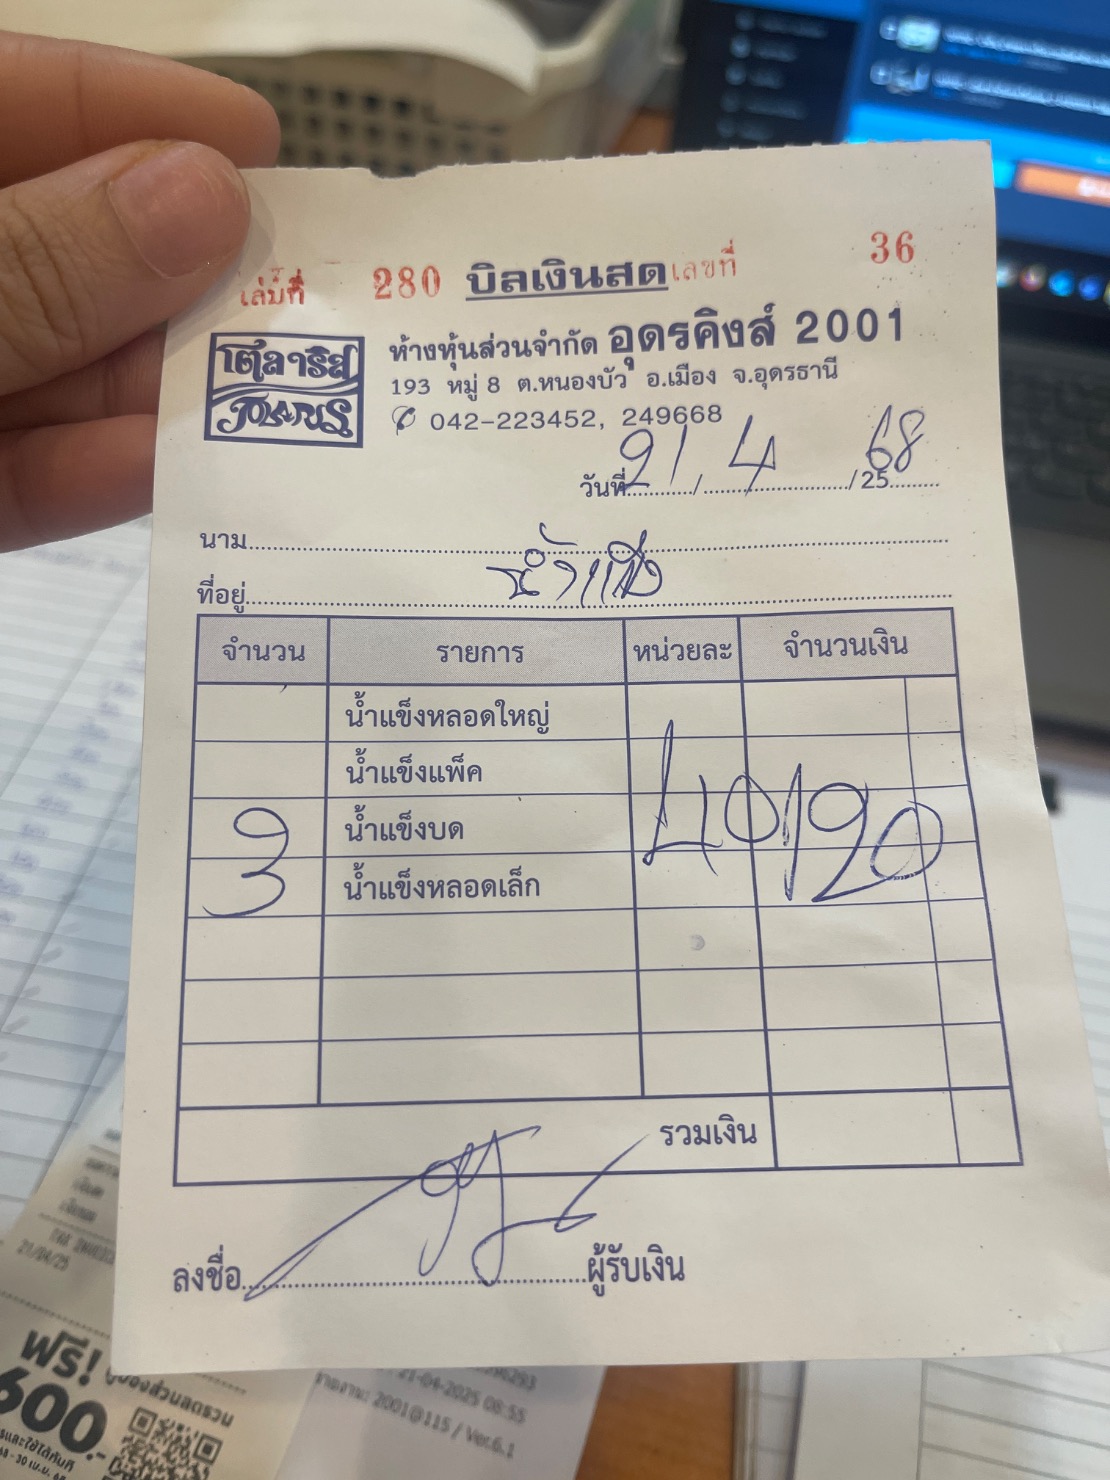 เล่มที่ 280 บิลเงินสด เลขที่ 36
โตลาริส
TOLARIS
ห้างหุ้นส่วนจำกัด อุดรคิงส์ 2001
193 หมู่ 8 ต.หนองบัว อ.เมือง จ.อุดรธานี
042-223452, 249668
วันที่ 21 / 4 / 25 68
นาม
น้ำแข็ง
ที่อยู่
จำนวน รายการ หน่วยละ จำนวนเงิน
น้ำแข็งหลอดใหญ่
น้ำแข็งแพ็ค
3 น้ำแข็งบด 40 120
น้ำแข็งหลอดเล็ก
รวมเงิน
ลงชื่อ ผู้รับเงิน
21/04/25
ฟรี!
600.-
21-04-2025 08:55
2001@115 / Ver.6.1